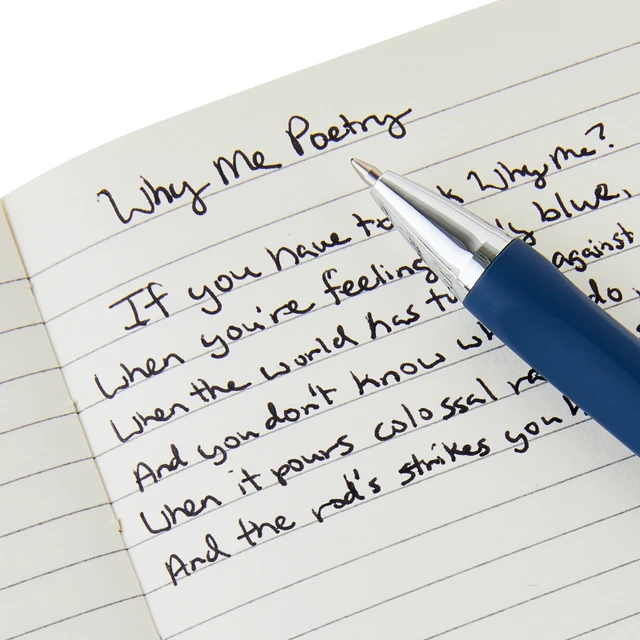 Why Me Poetry
If you have to k Why me?
When you're feeling ly blue,
When the world has tu against
And you don't know wh do
When it pours colossal ra
And the rod's strikes you